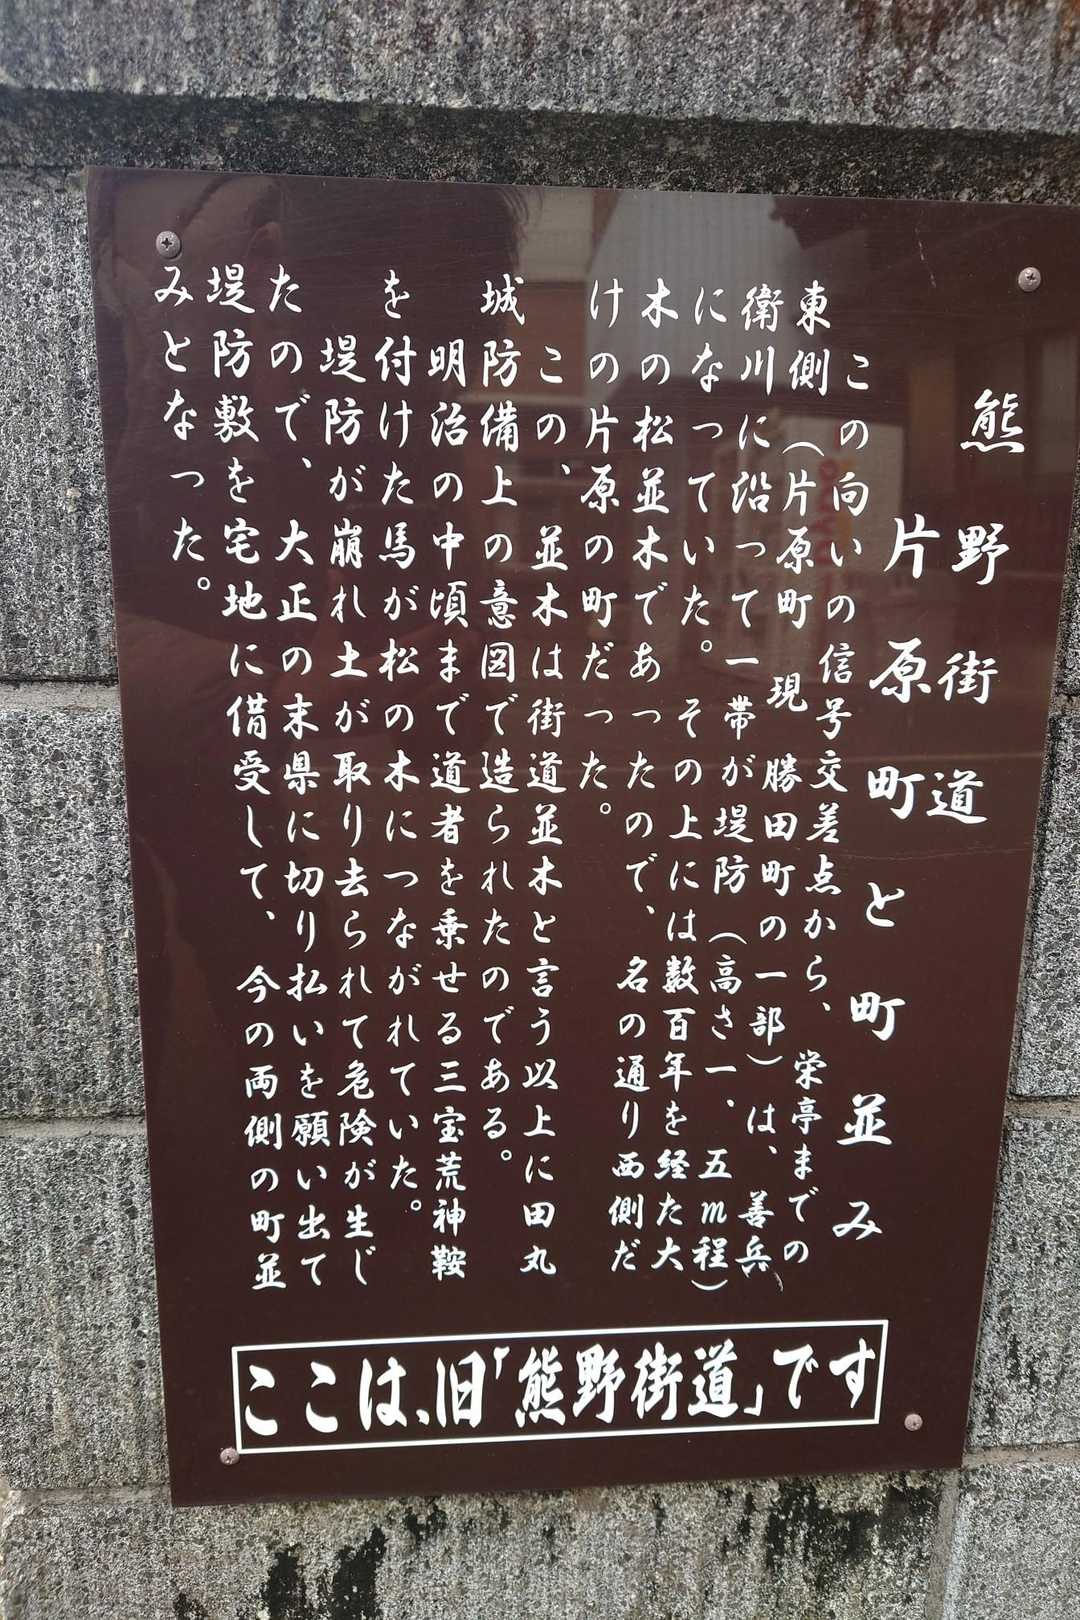 熊野街道
片原町と町並み
この向いの信号交差点から、栄亭までの
東側（片原町　現　勝田町の一部）は、善兵
衛川に沿って一帯が堤防（高さ一、五m程）
になっていた。その上には数百年を経た大
木の松並木であったので、名の通り西側だ
けの片原の町だった。
この、並木は街道並木と言う以上に田丸
城防備上の意図で造られたのである。
明治の中頃まで道者を乗せる三宝荒神鞍
を付けた馬が松の木につながれていた。
堤防が崩れ土が取り去られて危険が生じ
たので、大正の末県に切り払いを願い出て
堤防敷を宅地に借受して、今の両側の町並
みとなった。
ここは、旧「熊野街道」です